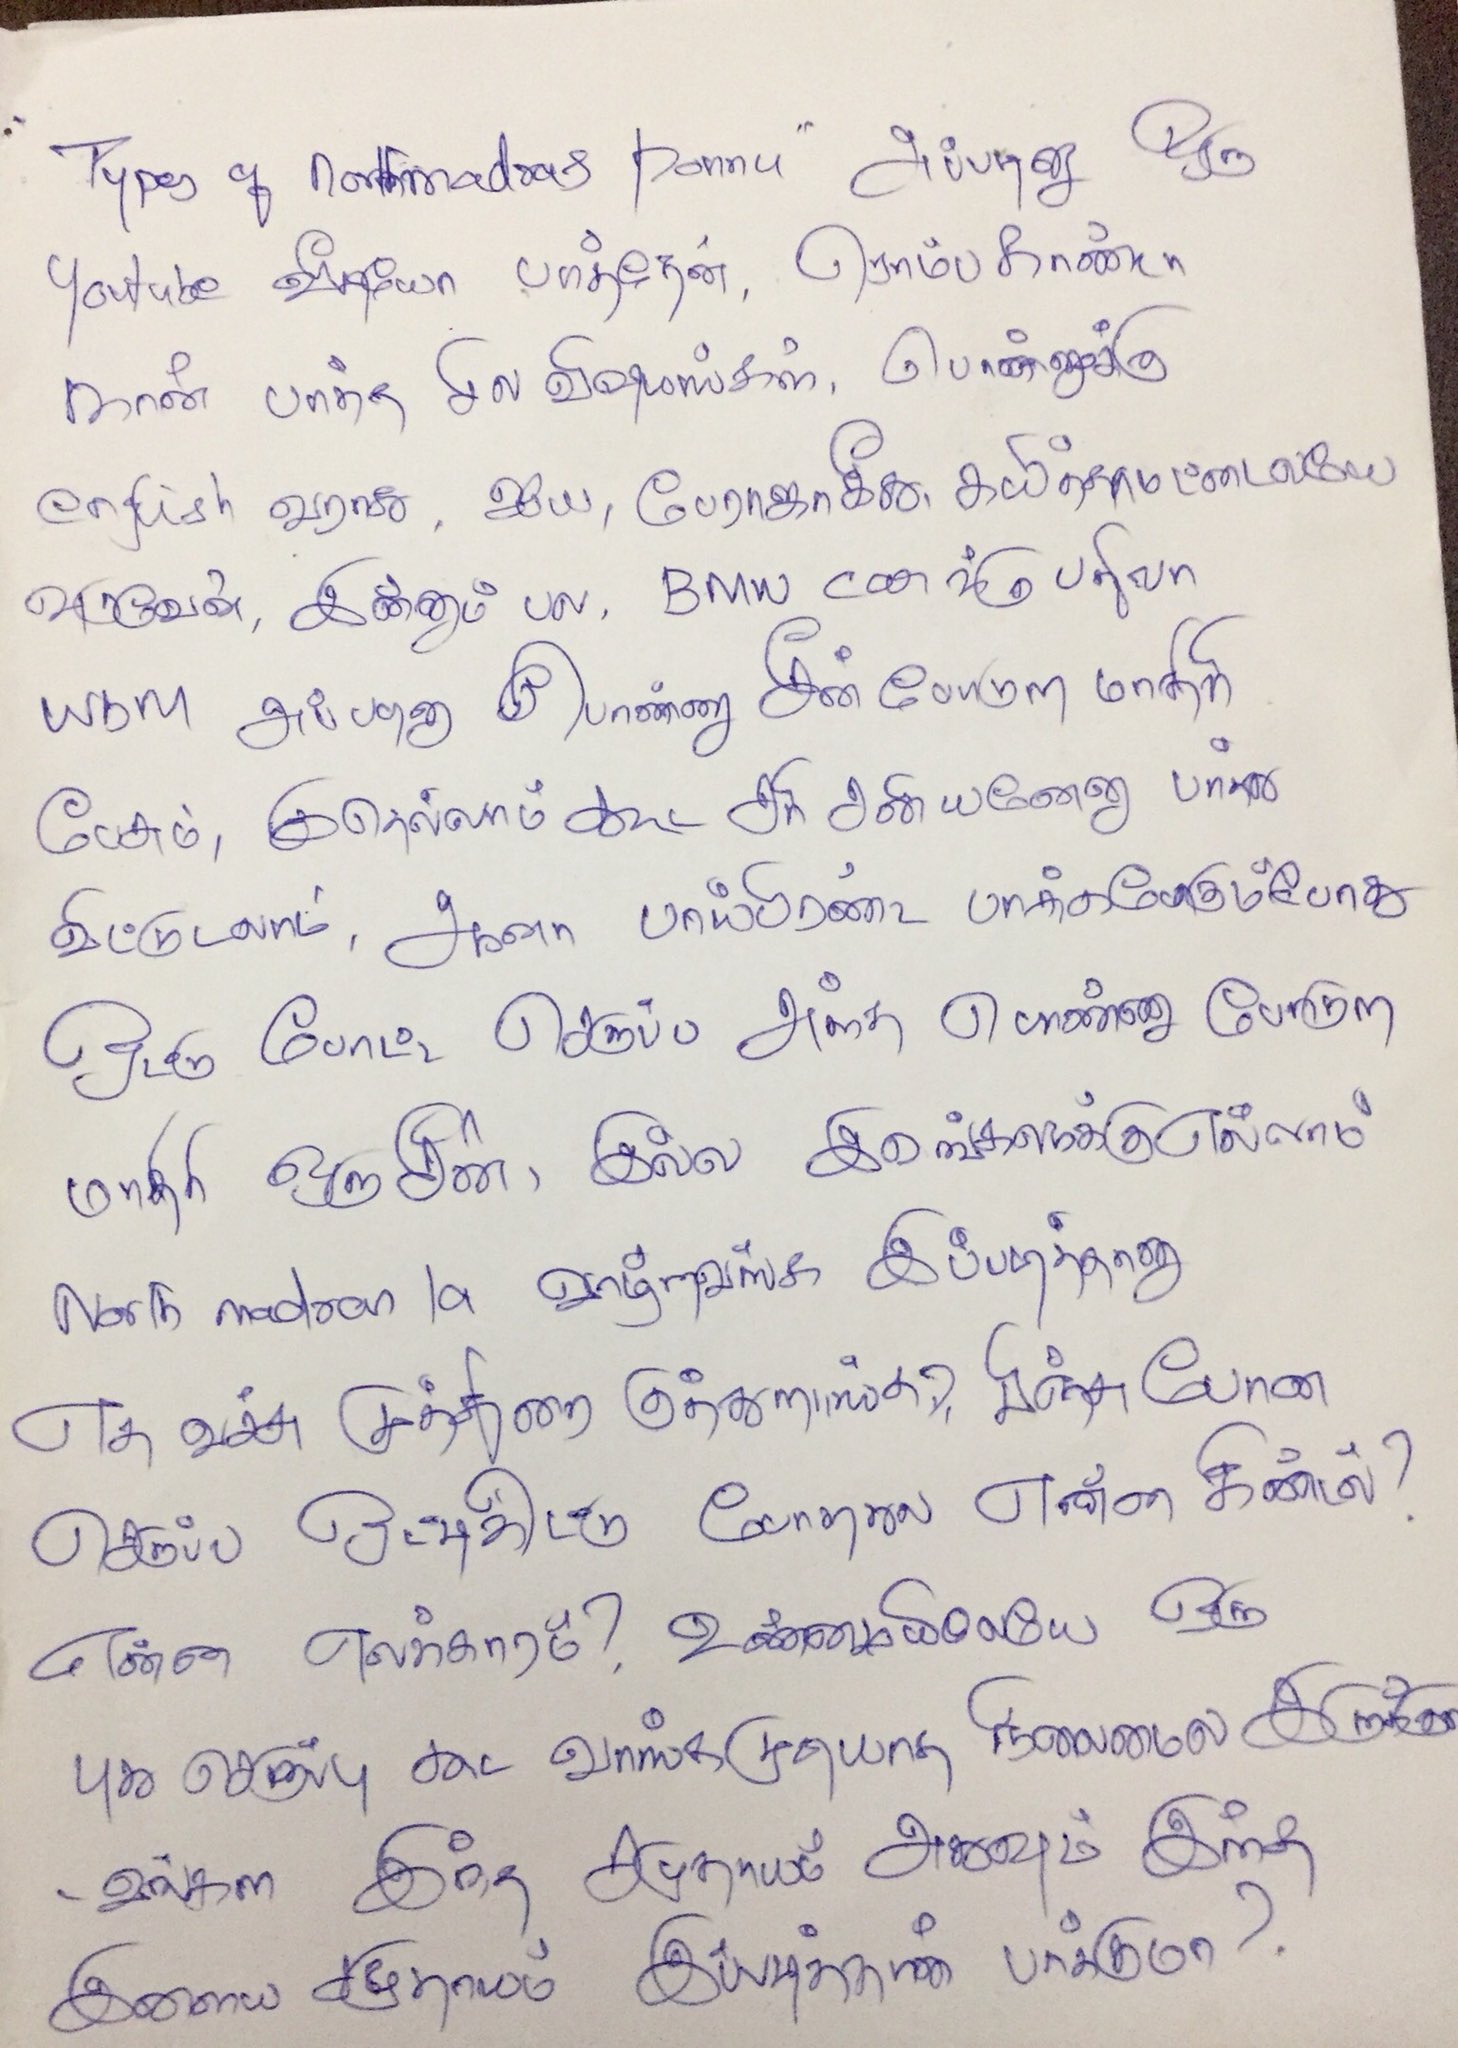 "Types of northmadras ponnu" அப்படினு ஒரு
Youtube வீடியோ பாத்தேன், ரொம்ப காண்டா
நான் பாத்த சில விஷயங்கள், பொண்ணுக்கு
english வராது, அய,
வருவேன், இன்னும் பல, BMW
அப்படினு பொண்ணு சீன் போடுற மாதிரி
பேசும், இதெல்லாம் கூட சரி சனியனேனு பாத்து
விட்டுடலாம், ஆனா பாய்பிரண்ட பாக்கபோகும்போது
ஒட்டு போட்ட செருப்ப அந்த பொண்ணு போடுற
மாதிரி ஒரு சீன், இல்ல இவங்களுக்குஎல்லாம்
North madras la வாழ்றவங்க இப்படித்தானு
எத வச்சு முத்திரை குத்துறாங்க?, பிஞ்சு போன
செருப்ப ஒட்டிகிட்டு போறதுல என்ன கிண்டல்?
என்ன எலக்காரம்?, உண்மையிலேயே ஒரு
புது செருப்பு கூட வாங்க முடியாத நிலைமைல இருக்குற
- வங்கள இந்த சமுதாயம் அதுவும் இந்த
இளைய சமுதாயம் இப்படித்தான் பாக்குமா?.